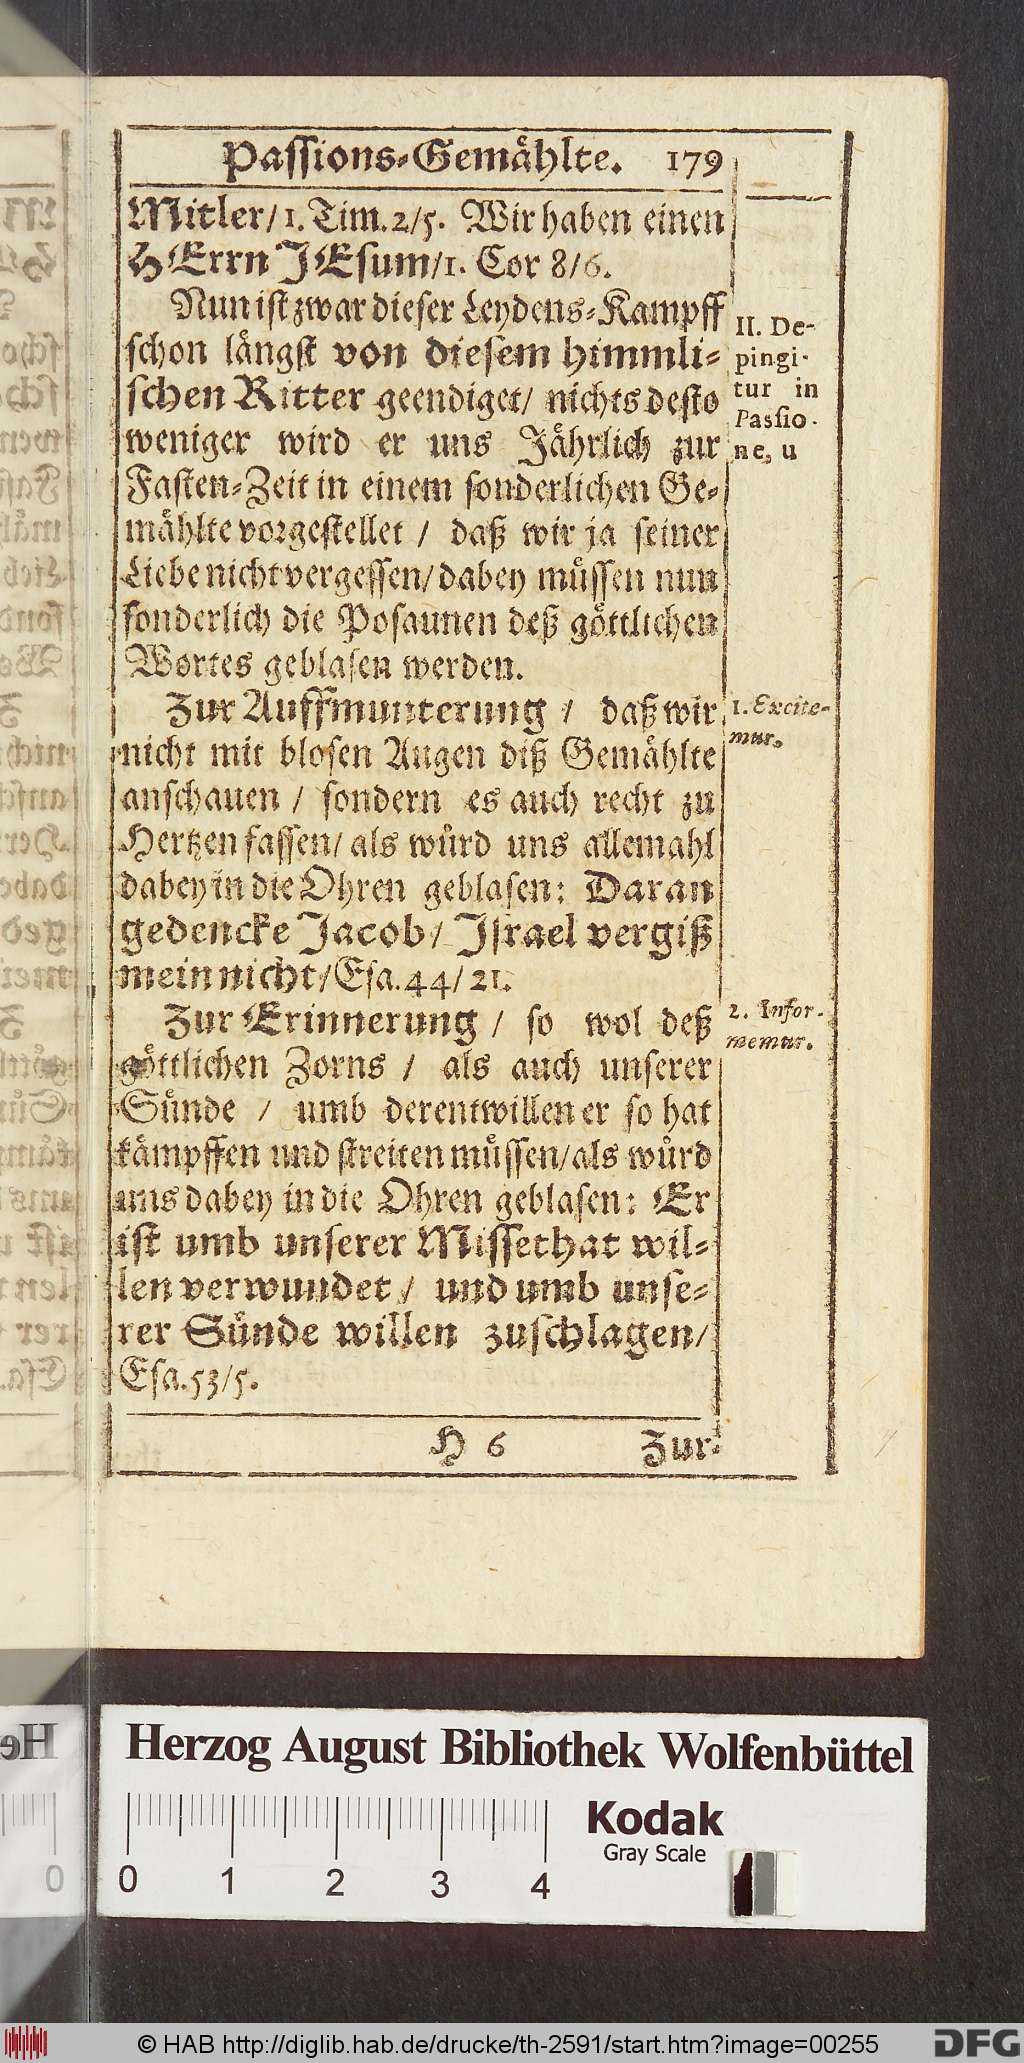 Passions-Gemählte. 179
Mitler/1. Tim. 2/5. Wir haben einen
HErrn JEsum/1. Cor 8/6.
Nun ist zwar dieser Leydens-Kampff
schon längst von diesem himmli-
schen Ritter geendiget/ nichts desto
weniger wird er uns Jährlich zur
Fasten-Zeit in einem sonderlichen Ge-
mählte vorgestellet / daß wir ja seiner
Liebe nicht vergessen/ dabey müssen nun
sonderlich die Posaunen deß göttlichen
Wortes geblasen werden.
II. De-
pingi-
tur in
Passio-
ne, u
Zur Auffmunterung / daß wir
nicht mit blosen Augen diß Gemählte
anschauen / sondern es auch recht zu
Hertzen fassen/ als würd uns allemahl
dabey in die Ohren geblasen: Daran
gedencke Jacob/ Israel vergiß
mein nicht/ Esa. 44/ 21.
1. Excite-
mur.
Zur Erinnerung / so wol deß
göttlichen Zorns / als auch unserer
Sünde / umb derentwillen er so hat
kämpffen und streiten müssen/ als würd
uns dabey in die Ohren geblasen: Er
ist umb unserer Missethat wil-
len verwundet / und umb unse-
rer Sünde willen zuschlagen/
Esa. 53/5.
2. Infor-
memur.
H 6 Zur-
Herzog August Bibliothek Wolfenbüttel
Kodak
Gray Scale
0 1 2 3 4
© HAB http://diglib.hab.de/drucke/th-2591/start.htm?image=00255
DFG